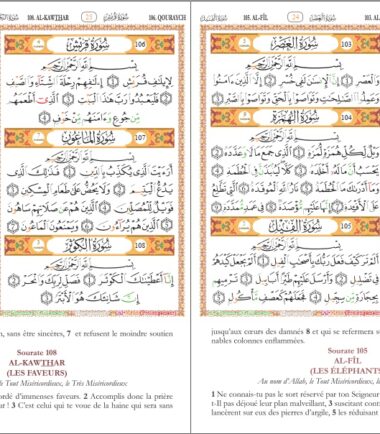 108. AL-KAWTHAR 23 سُورَةُ قُرَيْش 106. QOURAYCH
سُورَةُ قُرَيْشٍ 106
بِسْمِ اللَّهِ الرَّحْمَٰنِ الرَّحِيمِ
لِإِيلَٰفِ قُرَيْشٍ ① إِۦلَٰفِهِمْ رِحْلَةَ ٱلشِّتَآءِ وَٱلصَّيْفِ
② فَلْيَعْبُدُوا۟ رَبَّ هَٰذَا ٱلْبَيْتِ ③ ٱلَّذِىٓ أَطْعَمَهُم
مِّن جُوعٍ وَءَامَنَهُم مِّنْ خَوْفٍ ④
سُورَةُ الْمَاعُونِ 107
بِسْمِ اللَّهِ الرَّحْمَٰنِ الرَّحِيمِ
أَرَءَيْتَ ٱلَّذِى يُكَذِّبُ بِٱلدِّينِ ① فَذَٰلِكَ ٱلَّذِى
يَدُعُّ ٱلْيَتِيمَ ② وَلَا يَحُضُّ عَلَىٰ طَعَامِ ٱلْمِسْكِينِ ③
فَوَيْلٌ لِّلْمُصَلِّينَ ④ ٱلَّذِينَ هُمْ عَن صَلَاتِهِمْ سَاهُونَ
⑤ ٱلَّذِينَ هُمْ يُرَآءُونَ ⑥ وَيَمْنَعُونَ ٱلْمَاعُونَ ⑦
سُورَةُ الْكَوْثَرِ 108
بِسْمِ اللَّهِ الرَّحْمَٰنِ الرَّحِيمِ
إِنَّآ أَعْطَيْنَٰكَ ٱلْكَوْثَرَ ① فَصَلِّ لِرَبِّكَ وَٱنْحَرْ ②
إِنَّ شَانِئَكَ هُوَ ٱلْأَبْتَرُ ③
n, sans être sincères, 7 et refusent le moindre soutien
Sourate 108
AL-KAWTHAR
(LES FAVEURS)
le Tout Miséricordieux, le Très Miséricordieux
ordé d'immenses faveurs. 2 Accomplis donc la prière
r ! 3 C'est celui qui te voue de la haine qui sera sans
105. AL-FÎL 24 103. AL-
سُورَةُ الْعَصْرِ 103
بِسْمِ اللَّهِ الرَّحْمَٰنِ الرَّحِيمِ
وَٱلْعَصْرِ ① إِنَّ ٱلْإِنسَٰنَ لَفِى خُسْرٍ ② إِلَّا ٱلَّذِينَ ءَامَنُوا۟
وَعَمِلُوا۟ ٱلصَّٰلِحَٰتِ وَتَوَاصَوْا۟ بِٱلْحَقِّ وَتَوَاصَوْا۟ بِٱلصَّبْرِ ③
سُورَةُ الْهُمَزَةِ 104
بِسْمِ اللَّهِ الرَّحْمَٰنِ الرَّحِيمِ
وَيْلٌ لِّكُلِّ هُمَزَةٍ لُّمَزَةٍ ① ٱلَّذِى جَمَعَ مَالًا وَعَدَّدَهُۥ ②
يَحْسَبُ أَنَّ مَالَهُۥٓ أَخْلَدَهُۥ ③ كَلَّا لَيُنۢبَذَنَّ فِى ٱلْحُطَمَةِ ④
وَمَآ أَدْرَىٰكَ مَا ٱلْحُطَمَةُ ⑤ نَارُ ٱللَّهِ ٱلْمُوقَدَةُ ⑥ ٱلَّتِى تَطَّلِعُ
عَلَى ٱلْأَفْـِٔدَةِ ⑦ إِنَّهَا عَلَيْهِم مُّؤْصَدَةٌ ⑧ فِى عَمَدٍ مُّمَدَّدَةٍۭ ⑨
سُورَةُ الْفِيلِ 105
بِسْمِ اللَّهِ الرَّحْمَٰنِ الرَّحِيمِ
أَلَمْ تَرَ كَيْفَ فَعَلَ رَبُّكَ بِأَصْحَٰبِ ٱلْفِيلِ ① أَلَمْ يَجْعَلْ كَيْدَهُمْ
فِى تَضْلِيلٍ ② وَأَرْسَلَ عَلَيْهِمْ طَيْرًا أَبَابِيلَ ③ تَرْمِيهِم
بِحِجَارَةٍ مِّن سِجِّيلٍ ④ فَجَعَلَهُمْ كَعَصْفٍ مَّأْكُولٍۭ ⑤
jusqu'aux cœurs des damnés 8 et qui se refermera s
nables colonnes enflammées.
Sourate 105
AL-FÎL
(LES ÉLÉPHANTS
Au nom d'Allah, le Tout Miséricordieux, le
1 Ne connais-tu pas le sort réservé par ton Seigneur
t-Il pas déjoué leur plan malveillant, 3 suscitant contr
lancèrent sur eux des pierres d'argile, 5 les réduisant